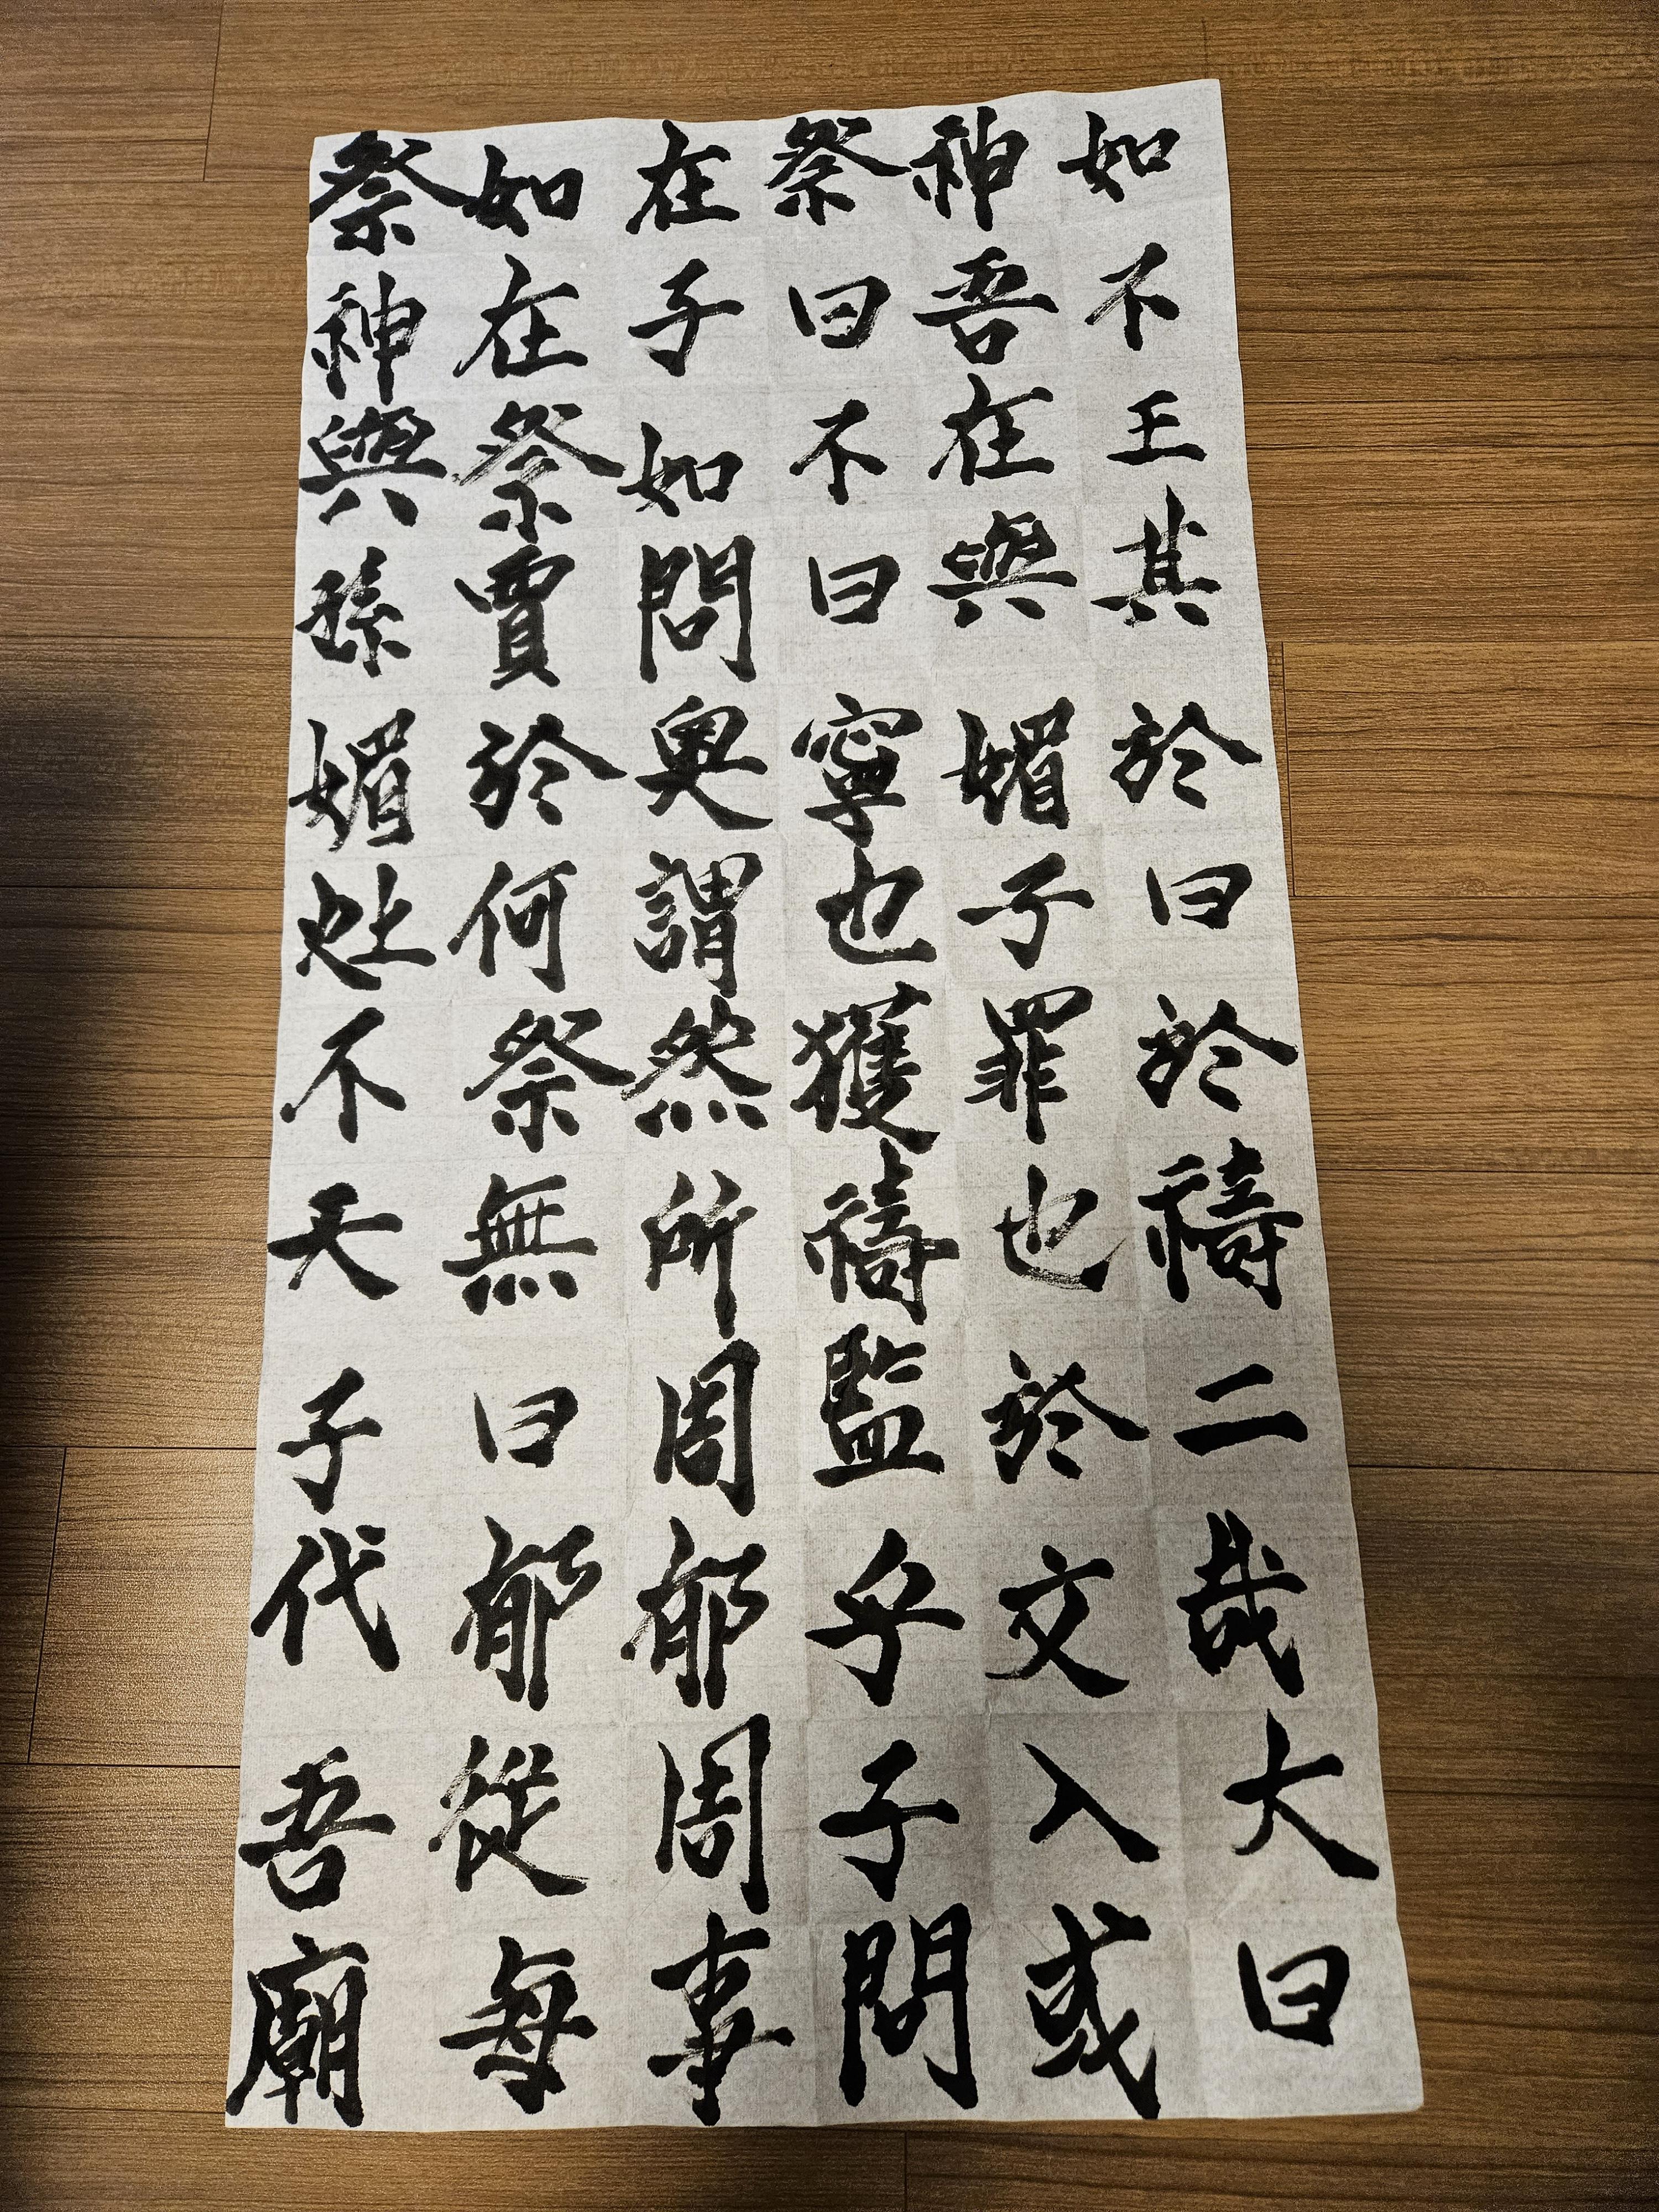 祭如在祭神如
神在子曰吾不
與祭如不在王
孫賈問曰與其
媚於奧寧媚於
灶何謂也子曰
不祭然獲罪於
天無所禱也禱
子曰周監於二
代郁郁乎文哉
吾從周子入大
廟每事問或曰